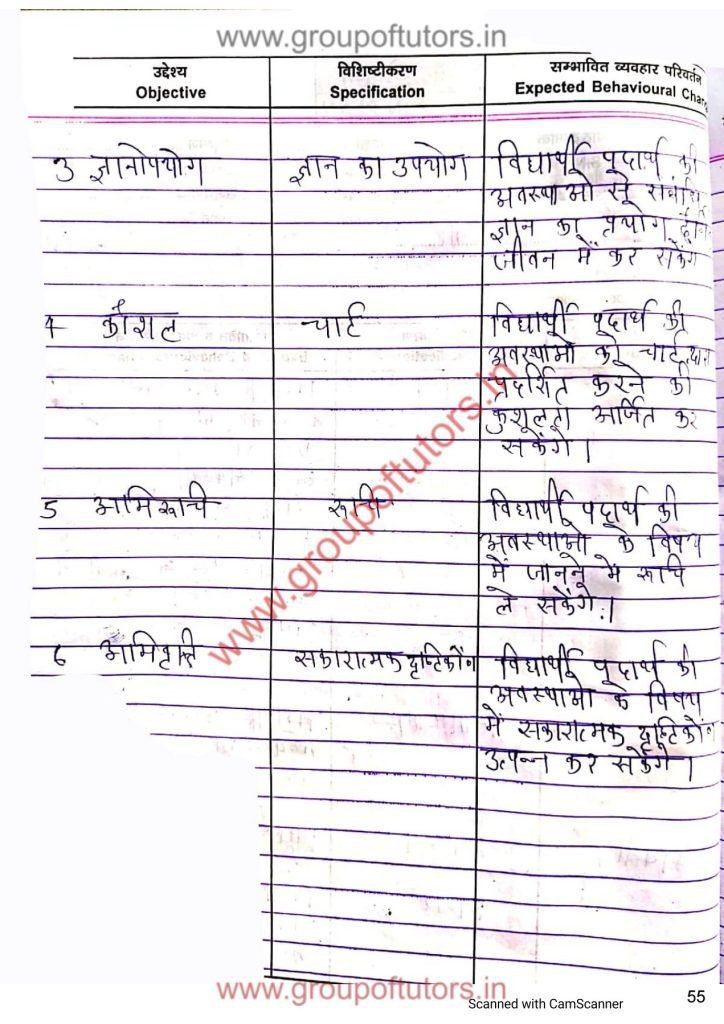 www.groupoftutors.in
उद्देश्य विशिष्टीकरण सम्भावित व्यवहार परिवर्तन
Objective Specification Expected Behavioural Chan
3 ज्ञानोपयोग ज्ञान का उपयोग विद्यार्थी पदार्थ की
अवस्थाओं से संबंधित
ज्ञान का प्रयोग
जीवन में कर सकेंगे
4 कौशल चार्ट विद्यार्थी पदार्थ की
अवस्थाओं को चार्ट द्वारा
प्रदर्शित करने की
कुशलता अर्जित कर
सकेंगे।
5 अभिरूचि रूचि विद्यार्थी पदार्थ की
अवस्थाओं के विषय
में जानने में रूचि
ले सकेंगे।
6 अभिवृत्ति सकारात्मक दृष्टिकोंण विद्यार्थी पदार्थ की
अवस्थाओं के विषय
में सकारात्मक दृष्टिकोंण
उत्पन्न कर सकेंगे।
www.groupoftutors.in
www.groupoftutors.in
55
Scanned with CamScanner